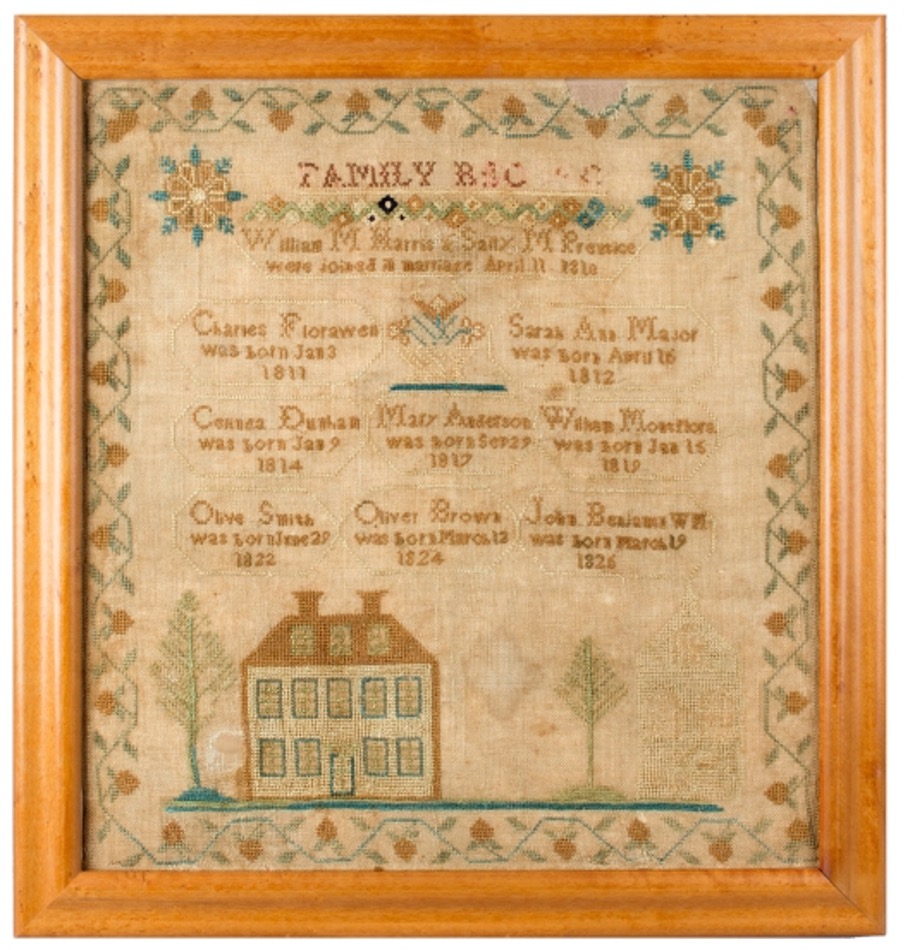 FAMILY
William M Harris & Sally M Prentice
were joined in marriage April 11 1810
Charles Florawell
was born Jan 3
1811
Sarah Ann Major
was born April 16
1812
Dunham
was born Jan 9
1814
Mary Anderson
was born Sep 29
1817
William
was born Jan 15
1819
Olive Smith
was born June 29
1822
Oliver Brown
was born March 12
1824
John Benjamin
was born March 19
1826